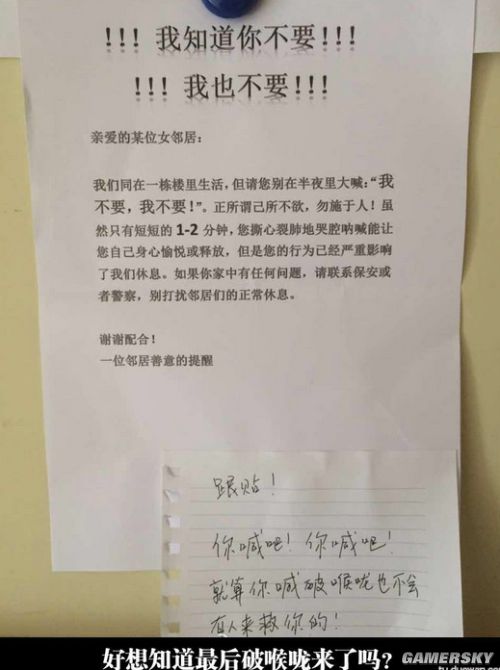 !!! 我知道你不要!!!
!!! 我也不要!!!
亲爱的某位女邻居:
我们同在一栋楼里生活,但请您别在半夜里大喊:“我
不要,我不要!”。正所谓己所不欲,勿施于人!虽
然只有短短的 1-2 分钟,您撕心裂肺地哭腔呐喊能让
您自己身心愉悦或释放,但是您的行为已经严重影响
了我们休息。如果你家中有任何问题,请联系保安或
者警察,别打扰邻居们的正常休息。
谢谢配合!
一位邻居善意的提醒
跟贴!
你喊吧!你喊吧!
就算你喊破喉咙也不会
有人来救你的!
好想知道最后破喉咙来了吗?
GAMERSKY